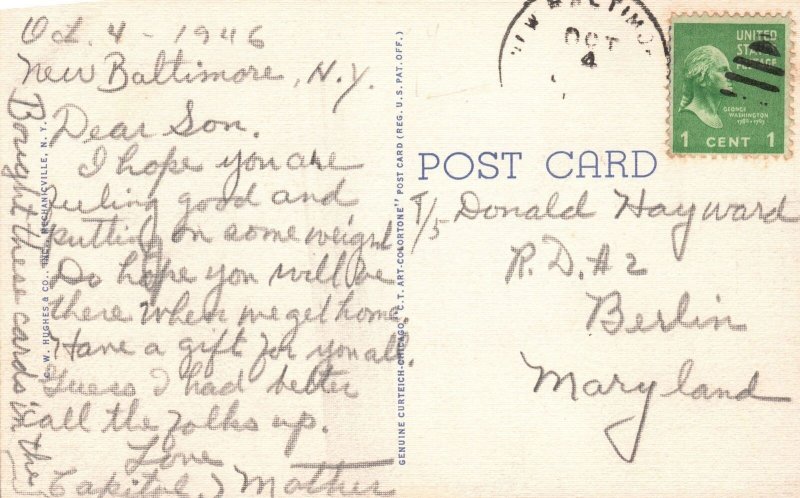 Oct. 4 - 1946
New Baltimore, N.Y.
Dear Son.
I hope you are
feeling good and
putting on some weight
Do hope you will be
there when we get home.
Have a gift for you all.
Guess I had better
call the folks up.
Love
Mother
Bought these cards in the
Capitol.
C. W. HUGHES & CO., INC., MECHANICVILLE, N. Y.
GENUINE CURTEICH-CHICAGO "C.T. ART-COLORTONE" POST CARD (REG. U. S. PAT. OFF.)
NEW BALTIMO
OCT
4
UNITED
STATES
POSTAGE
GEORGE
WASHINGTON
1789-1797
1 CENT 1
POST CARD
T/5 Donald Hayward
R.D. # 2
Berlin
Maryland